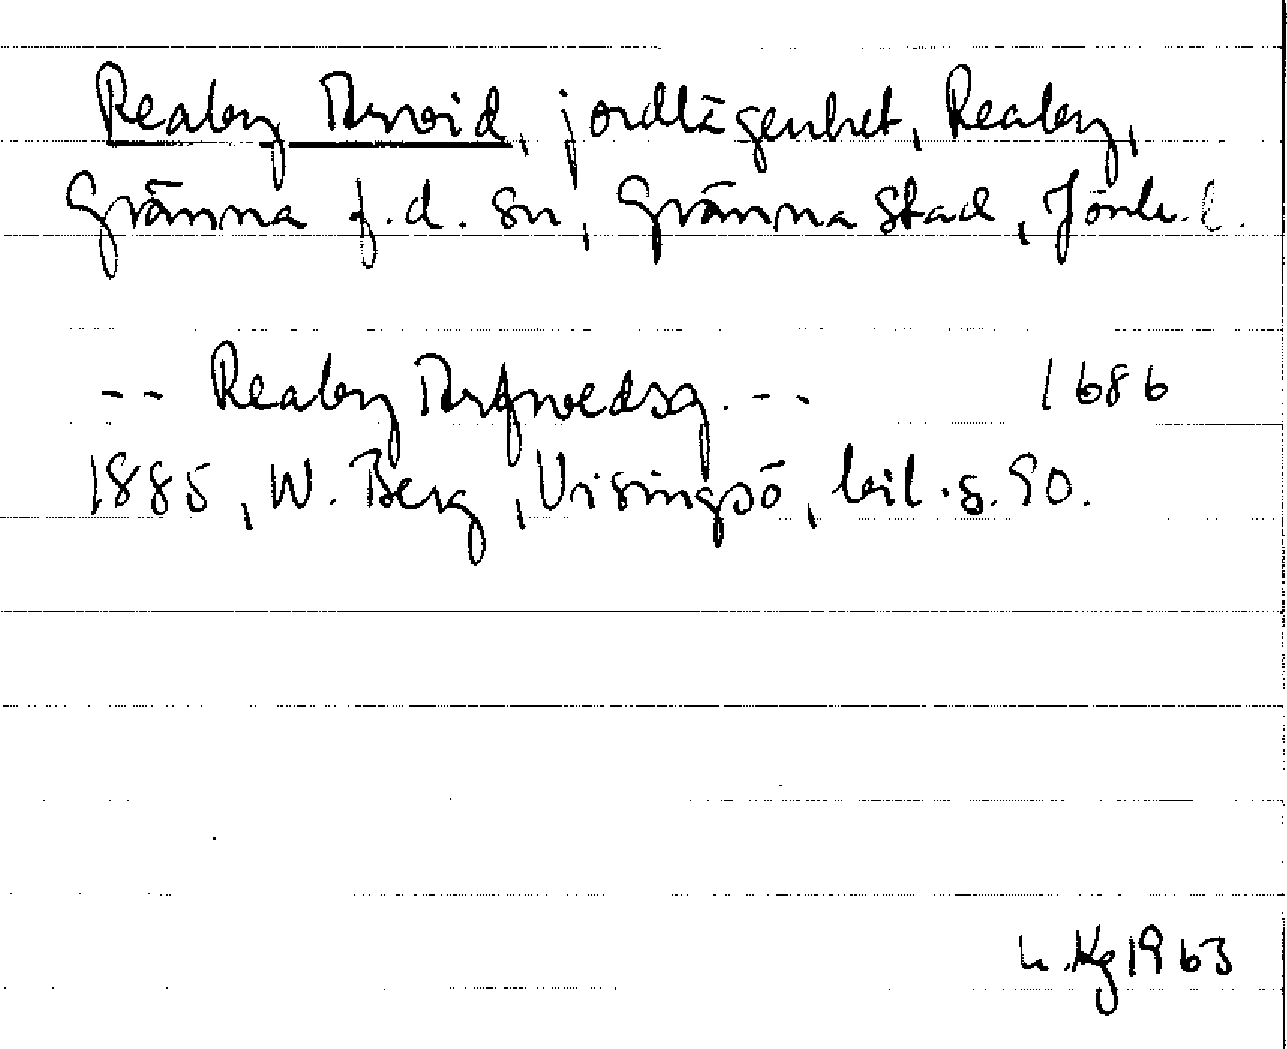 Reaby Torvid, jordlägenhet, Reaby,
Gränna f.d. sn, Gränna stad, Jönk. l.
-- Reaby Torfwedsg. -- 1686
1885, W. Berg, Visingsö, bil. s. 90.
Kg 1963